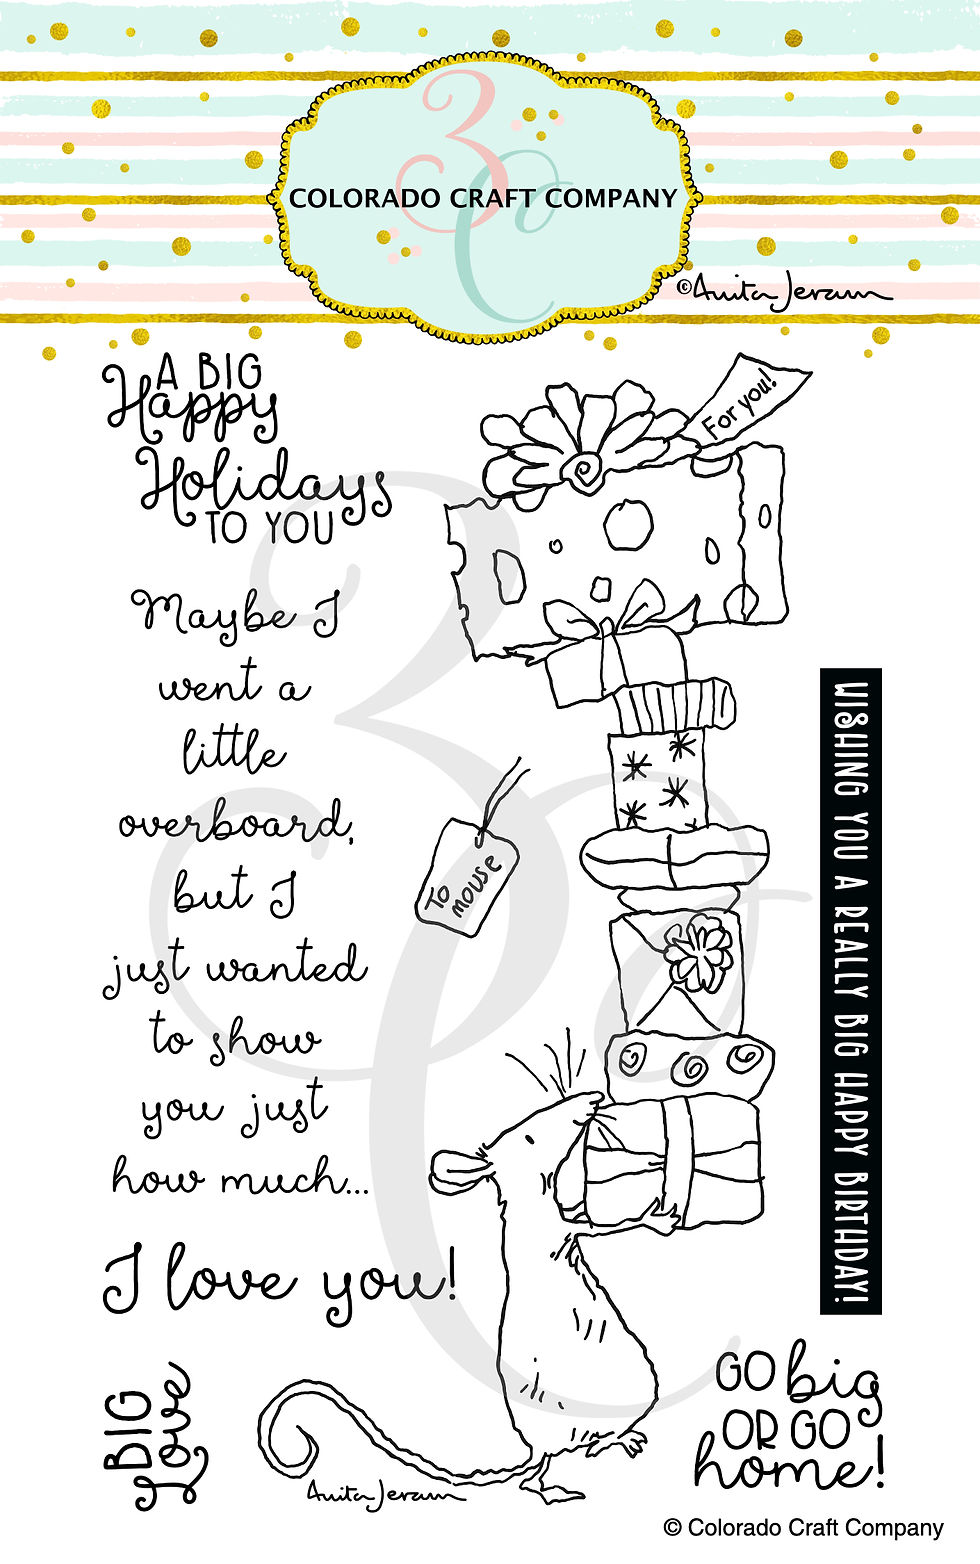 3C
COLORADO CRAFT COMPANY
©Anita Jeram
A BIG
Happy
Holidays
TO YOU
For you!
Maybe I
went a
little
overboard,
but I
just wanted
to show
you just
how much...
I love you!
To
mouse
WISHING YOU A REALLY BIG HAPPY BIRTHDAY!
BIG
Love
Anita Jeram
GO big
OR GO
home!
© Colorado Craft Company
3C